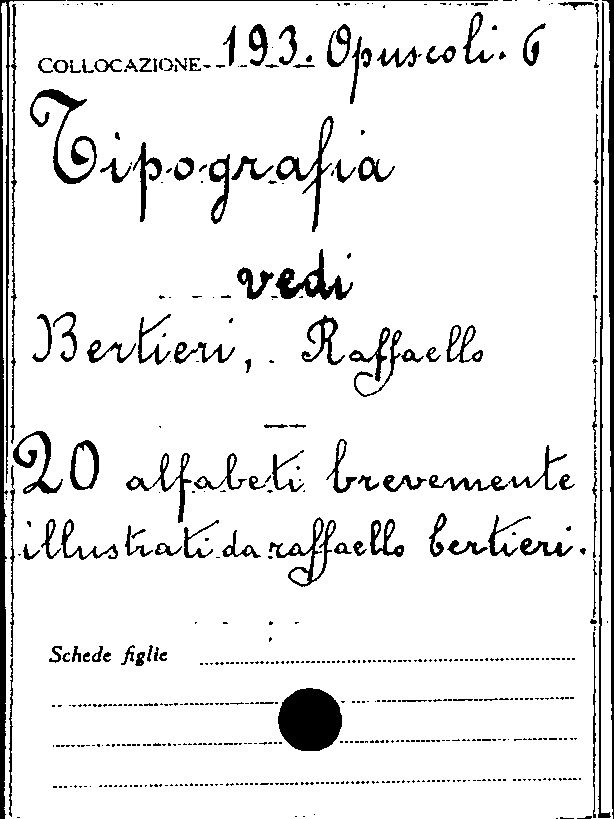 COLLOCAZIONE 193. Opuscoli. 6
Tipografia
vedi
Bertieri, Raffaello
20 alfabeti brevemente
illustrati da raffaello bertieri.
Schede figlie